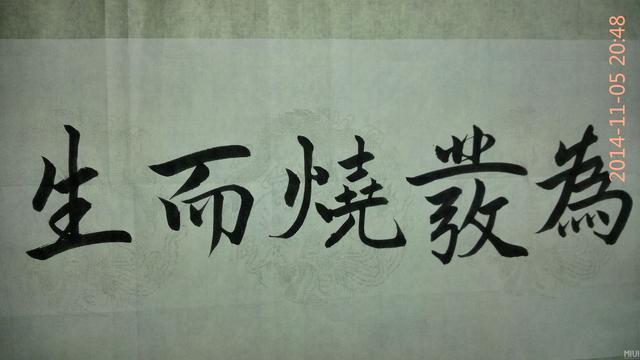 為發燒而生
2014-11-05 20:48
MIUI